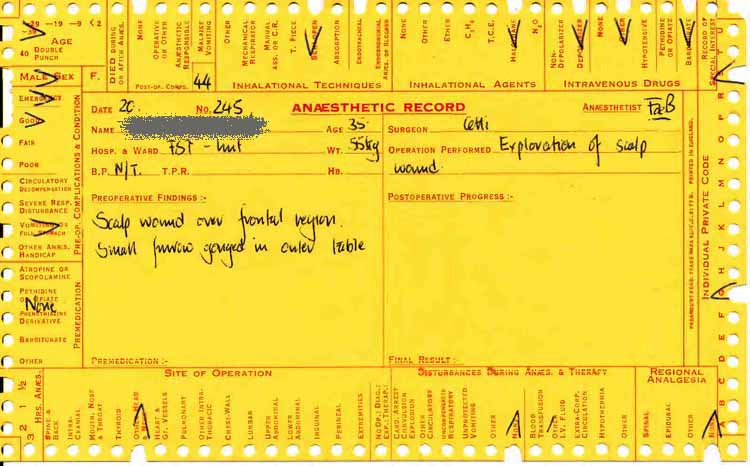 39 29 19 9 <2
AGE
40 DOUBLE PUNCH
MALE SEX F.
DIED DURING OR AFTER ANÆS.
POST-OP. COMPS. 44
NONE
OPERATIVE OR OTHER
ANÆSTHETIC RESPONSIBLE
MALAISE VOMITING
OTHER
MECHANICAL RESPIRATOR
MANUAL ASS. OR C.R.
T. PIECE
ABSORPTION
ENDOTRACHEAL
ENDOBRONCHIAL ANÆS. OR BLOCKER
INHALATIONAL TECHNIQUES
NONE
OTHER
ETHER
C₃H₆
T.C.E.
HALOTHANE
N₂O
INHALATIONAL AGENTS
NON-DEPOLARIZER
DEPOLARIZER
NONE
OTHER
HYPOTENSIVE
PETHIDINE OR OPIATE
BARBITURATE
INTRAVENOUS DRUGS
RECORD OF SPECIAL INTEREST
DATE 20. No. 245 ANÆSTHETIC RECORD ANÆSTHETIST FaB
NAME AGE 35 SURGEON
HOSP. & WARD FST - Unit WT. 55kg OPERATION PERFORMED Exploration of scalp
B.P. N/T. T.P.R. HB. wound.
PREOPERATIVE FINDINGS :- POSTOPERATIVE PROGRESS :-
Scalp wound over frontal region.
Small furrow gouged in outer table
PREMEDICATION :- FINAL RESULT :-
EMERGENCY
GOOD
FAIR
POOR
CIRCULATORY DECOMPENSATION
SEVERE RESP. DISTURBANCE
VOMITING OR FULL STOMACH
OTHER ANÆS. HANDICAP
PRE-OP. COMPLICATIONS & CONDITION
ATROPINE OR SCOPOLAMINE
PETHIDINE OR OPIATE
None
PHENOTHIAZINE DERIVATIVE
BARBITURATE
OTHER
PREMEDICATION
PRINTED IN ENGLAND.
INDIVIDUAL PRIVATE CODE
A B C D E F G H I J K L M N O P R
3 2 1 ½
HRS. ANÆS.
SITE OF OPERATION
SPINE & BACK
INTRA-CRANIAL
MOUTH, NOSE & THROAT
THYROID
OTHER HEAD & NECK
HEART & GT. VESSELS
PULMONARY
OTHER INTRA-THORACIC
CHEST-WALL
LUMBAR
UPPER ABDOMINAL
LOWER ABDOMINAL
INGUINAL
PERINEAL
EXTREMITIES
DISTURBANCES DURING ANÆS. & THERAPY
NO OP.: DIAG.: EXP.: THERAP.:
CARD. ARREST CONVULSION EXPLOSION
OTHER CIRCULATORY
UNCOMPENSATED RESPIRATORY
UNPROTECTED VOMITING
OTHER
NONE
BLOOD TRANSFUSION
OTHER I.V. FLUID
EXTRA-CORP. CIRCULATION
HYPOTHERMIA
OTHER
REGIONAL ANALGESIA
SPINAL
EPIDURAL
OTHER
NONE